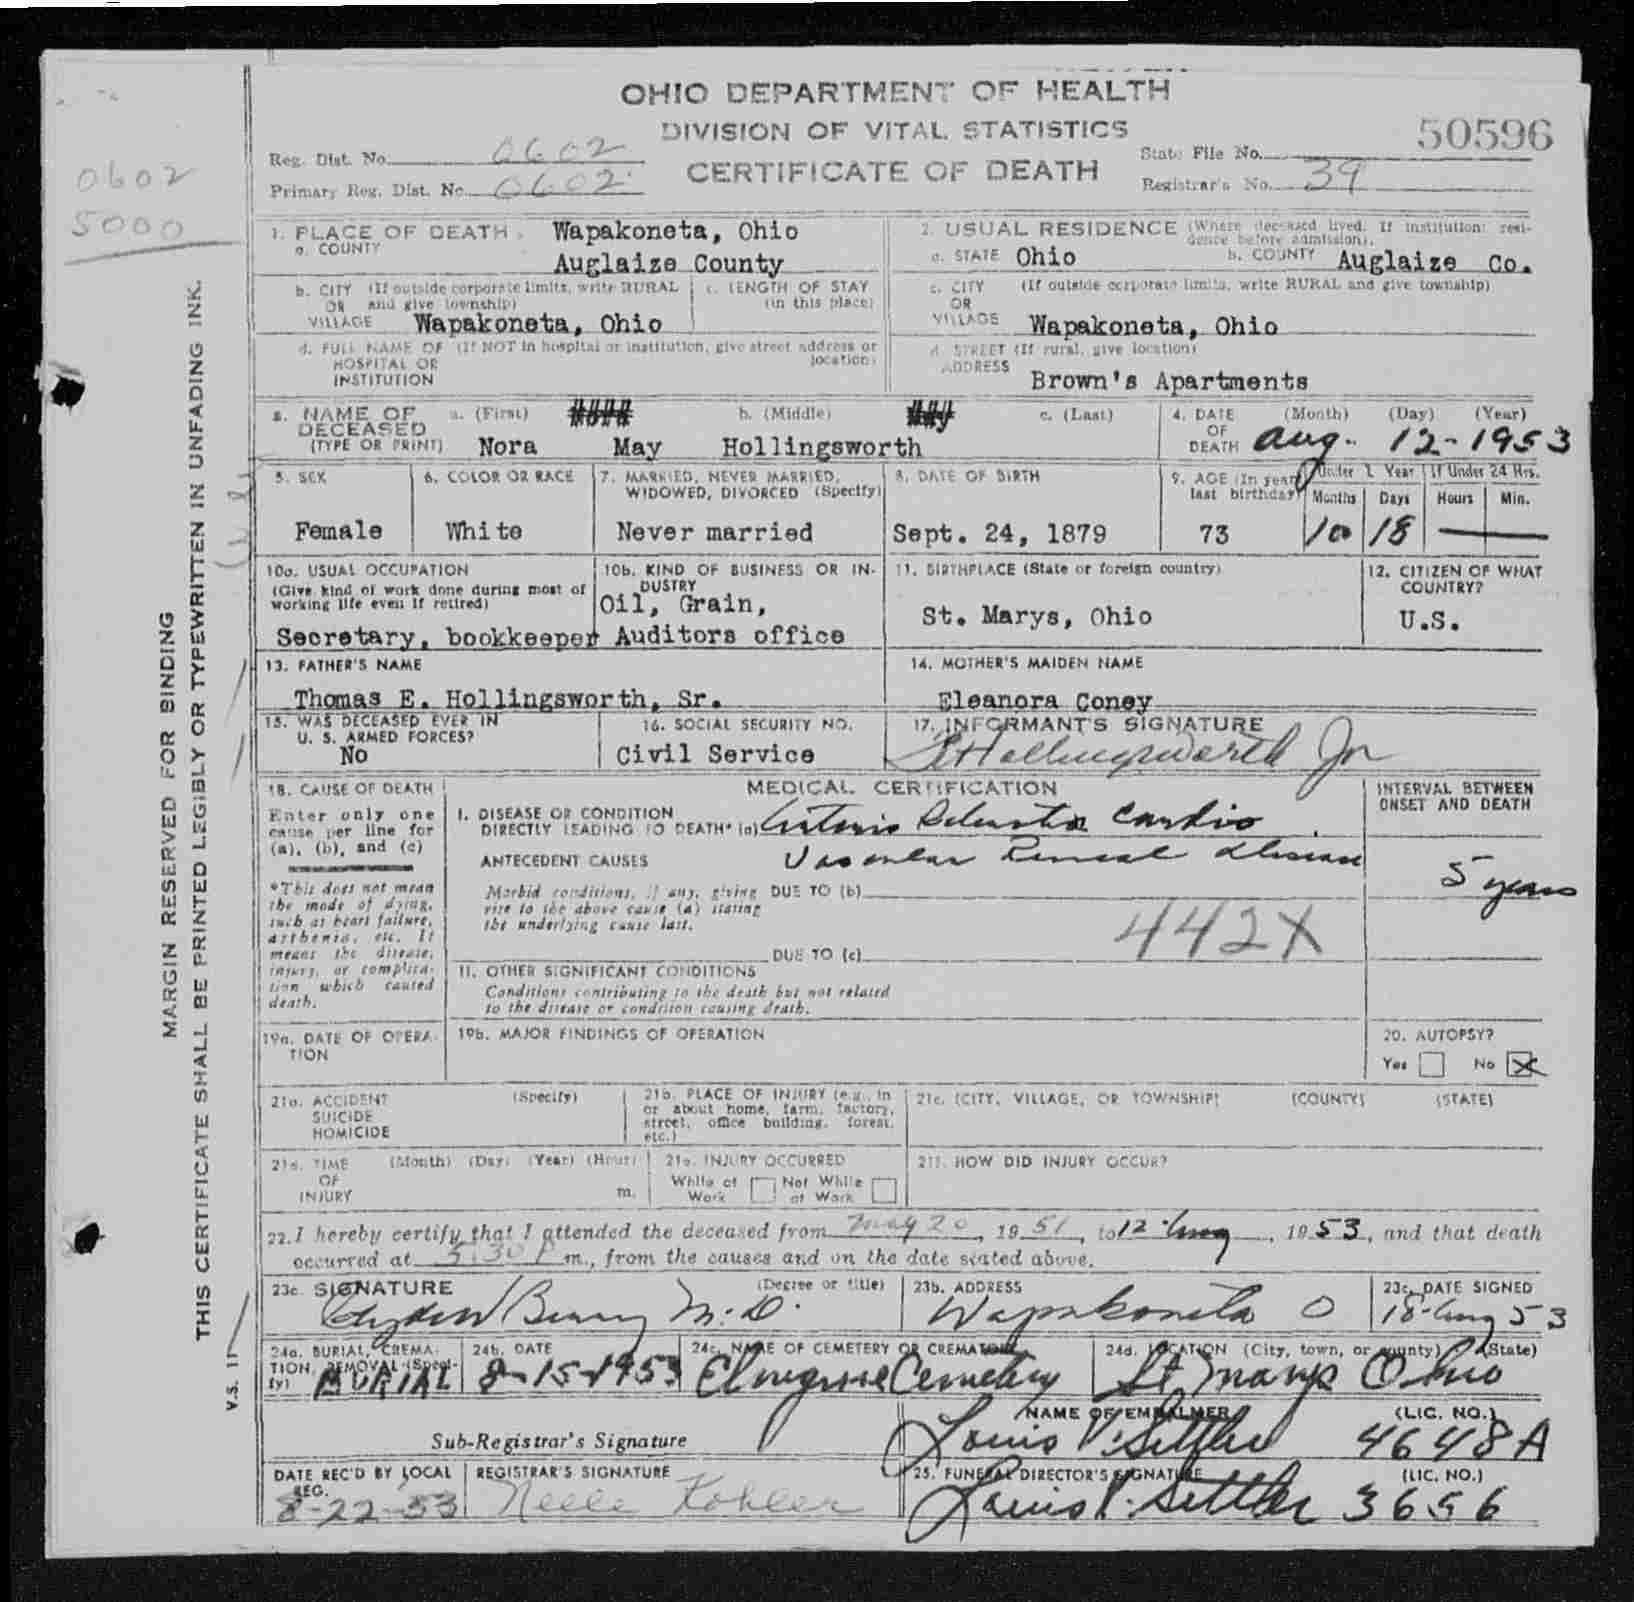 OHIO DEPARTMENT OF HEALTH
DIVISION OF VITAL STATISTICS
CERTIFICATE OF DEATH
Reg. Dist. No. 0602
Primary Reg. Dist. No. 0602
State File No. 50596
Registrar's No. 39
0602
5000
MARGIN RESERVED FOR BINDING
THIS CERTIFICATE SHALL BE PRINTED LEGIBLY OR TYPEWRITTEN IN UNFADING INK.
V.S. 11
1. PLACE OF DEATH Wapakoneta, Ohio
a. COUNTY Auglaize County
b. CITY (If outside corporate limits, write RURAL
OR and give township)
VILLAGE Wapakoneta, Ohio
c. LENGTH OF STAY
(in this place)
d. FULL NAME OF (If NOT in hospital or institution, give street address or
HOSPITAL OR location)
INSTITUTION
2. USUAL RESIDENCE (Where deceased lived. If institution: resi-
dence before admission).
a. STATE Ohio b. COUNTY Auglaize Co.
c. CITY (If outside corporate limits, write RURAL and give township)
OR
VILLAGE Wapakoneta, Ohio
d. STREET (If rural, give location)
ADDRESS Brown's Apartments
3. NAME OF a. (First) b. (Middle) c. (Last)
DECEASED
(TYPE OR PRINT) Nora May Hollingsworth
4. DATE (Month) (Day) (Year)
OF
DEATH Aug. 12-1953
5. SEX
Female
6. COLOR OR RACE
White
7. MARRIED, NEVER MARRIED,
WIDOWED, DIVORCED (Specify)
Never married
8. DATE OF BIRTH
Sept. 24, 1879
9. AGE (In years
last birthday)
73
Under 1 Year If Under 24 Hrs.
Months Days Hours Min.
10 18
10a. USUAL OCCUPATION
(Give kind of work done during most of
working life even if retired)
Secretary, bookkeeper
10b. KIND OF BUSINESS OR IN-
DUSTRY
Oil, Grain,
Auditors office
11. BIRTHPLACE (State or foreign country)
St. Marys, Ohio
12. CITIZEN OF WHAT
COUNTRY?
U.S.
13. FATHER'S NAME
Thomas E. Hollingsworth, Sr.
14. MOTHER'S MAIDEN NAME
Eleanora Coney
15. WAS DECEASED EVER IN
U. S. ARMED FORCES?
No
16. SOCIAL SECURITY NO.
Civil Service
17. INFORMANT'S SIGNATURE
Hollingsworth Jr
18. CAUSE OF DEATH
Enter only one
cause per line for
(a), (b), and (c)
*This does not mean
the mode of dying,
such as heart failure,
asthenia, etc. It
means the disease,
injury, or complica-
tion which caused
death.
MEDICAL CERTIFICATION
I. DISEASE OR CONDITION
DIRECTLY LEADING TO DEATH* (a) Arterio Sclerotic Cardio
ANTECEDENT CAUSES Vascular Renal disease
Morbid conditions, if any, giving DUE TO (b)
rise to the above cause (a) stating
the underlying cause last.
442X
DUE TO (c)
II. OTHER SIGNIFICANT CONDITIONS
Conditions contributing to the death but not related
to the disease or condition causing death.
INTERVAL BETWEEN
ONSET AND DEATH
5 years
19a. DATE OF OPERA-
TION
19b. MAJOR FINDINGS OF OPERATION
20. AUTOPSY?
Yes No X
21a. ACCIDENT (Specify)
SUICIDE
HOMICIDE
21b. PLACE OF INJURY (e.g., in
or about home, farm, factory,
street, office building, forest,
etc.)
21c. (CITY, VILLAGE, OR TOWNSHIP) (COUNTY) (STATE)
21d. TIME (Month) (Day) (Year) (Hour)
OF
INJURY m.
21e. INJURY OCCURRED
While at Not While
Work at Work
21f. HOW DID INJURY OCCUR?
22. I hereby certify that I attended the deceased from May 20, 1951, to 12 Aug, 1953, and that death
occurred at 5:30 P m., from the causes and on the date stated above.
23a. SIGNATURE (Degree or title)
Berry M.D.
23b. ADDRESS
Wapakoneta O
23c. DATE SIGNED
18-Aug 53
24a. BURIAL, CREMA-
TION, REMOVAL (Speci-
fy) BURIAL
24b. DATE
8-15-1953
24c. NAME OF CEMETERY OR CREMATORY
Elmgrove Cemetery
24d. LOCATION (City, town, or county) (State)
St Marys Ohio
Sub-Registrar's Signature
NAME OF EMBALMER (LIC. NO.)
Louis V. Settler 4648A
DATE REC'D BY LOCAL
REG.
8-22-53
REGISTRAR'S SIGNATURE
Nelle Kohler
25. FUNERAL DIRECTOR'S SIGNATURE (LIC. NO.)
Louis V. Settler 3656